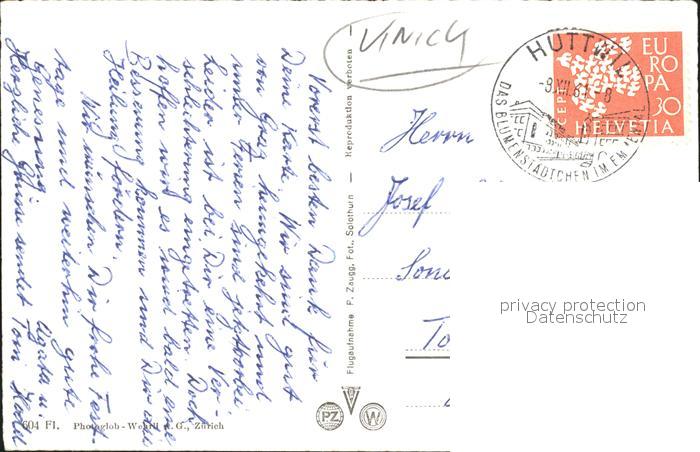 Vorerst besten Dank für
Deine Karte. Wir sind gut
von Graz heimgekehrt und
unsere Ferien sind jetzt vorbei.
Leider ist bei Dir eine Ver-
schlechterung eingetreten. Doch
hoffen wir, es wird bald eine
Besserung kommen und Dir die
Heilung fordern.
Wir wünschen Dir frohe Fest-
tage und weiterhin gute
Genesung.
Herzlich Grüsse sendet Toni
Agata u.
604 Fl. Photoglob-Wehrli A.G., Zürich
Flugaufnahme P. Zaugg, Fot., Solothurn — Reproduktion verboten —
PZ
W
VINICH
Herrn
Josef
HUTTWIL
-9.XII.61.-8
DAS BLUMENSTÄDTCHEN IM EMMENTAL
CEPT
EUROPA
30
HELVETIA
privacy protection
Datenschutz